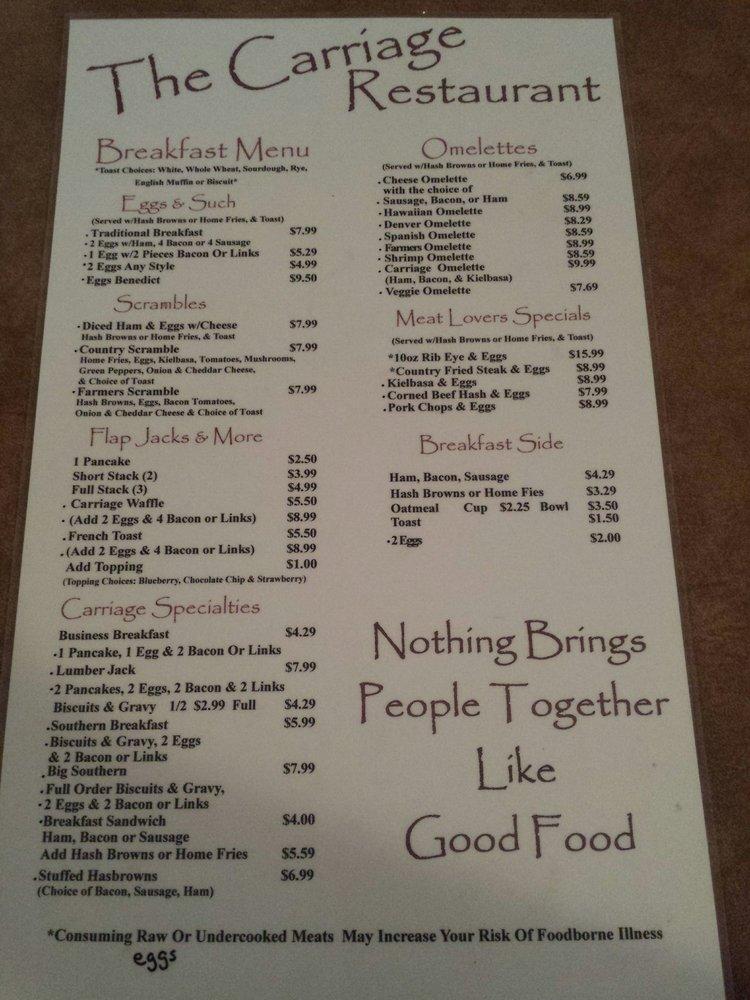 The Carriage
Restaurant
Breakfast Menu
*Toast Choices: White, Whole Wheat, Sourdough, Rye,
English Muffin or Biscuit*
Eggs & Such
(Served w/Hash Browns or Home Fries, & Toast)
. Traditional Breakfast $7.99
- 2 Eggs w/Ham, 4 Bacon or 4 Sausage
-1 Egg w/2 Pieces Bacon Or Links $5.29
*2 Eggs Any Style $4.99
*Eggs Benedict $9.50
Scrambles
·Diced Ham & Eggs w/Cheese $7.99
Hash Browns or Home Fries, & Toast
·Country Scramble $7.99
Home Fries, Eggs, Kielbasa, Tomatoes, Mushrooms,
Green Peppers, Onion & Cheddar Cheese,
& Choice of Toast
·Farmers Scramble $7.99
Hash Browns, Eggs, Bacon Tomatoes,
Onion & Cheddar Cheese & Choice of Toast
Flap Jacks & More
1 Pancake $2.50
Short Stack (2) $3.99
Full Stack (3) $4.99
. Carriage Waffle $5.50
· (Add 2 Eggs & 4 Bacon or Links) $8.99
.French Toast $5.50
.(Add 2 Eggs & 4 Bacon or Links) $8.99
Add Topping $1.00
(Topping Choices: Blueberry, Chocolate Chip & Strawberry)
Carriage Specialties
Business Breakfast $4.29
·1 Pancake, 1 Egg & 2 Bacon Or Links
.Lumber Jack $7.99
·2 Pancakes, 2 Eggs, 2 Bacon & 2 Links
Biscuits & Gravy 1/2 $2.99 Full $4.29
.Southern Breakfast $5.99
.Biscuits & Gravy, 2 Eggs
& 2 Bacon or Links
.Big Southern $7.99
.Full Order Biscuits & Gravy,
·2 Eggs & 2 Bacon or Links
·Breakfast Sandwich $4.00
Ham, Bacon or Sausage
Add Hash Browns or Home Fries $5.59
.Stuffed Hasbrowns $6.99
(Choice of Bacon, Sausage, Ham)
Omelettes
(Served w/Hash Browns or Home Fries, & Toast)
. Cheese Omelette $6.99
with the choice of
. Sausage, Bacon, or Ham $8.59
- Hawaiian Omelette $8.99
- Denver Omelette $8.29
. Spanish Omelette $8.59
. Farmers Omelette $8.99
- Shrimp Omelette $8.59
. Carriage Omelette $9.99
(Ham, Bacon, & Kielbasa)
· Veggie Omelette $7.69
Meat Lovers Specials
(Served w/Hash Browns or Home Fries, & Toast)
*10oz Rib Eye & Eggs $15.99
*Country Fried Steak & Eggs $8.99
. Kielbasa & Eggs $8.99
.Corned Beef Hash & Eggs $7.99
.Pork Chops & Eggs $8.99
Breakfast Side
Ham, Bacon, Sausage $4.29
Hash Browns or Home Fies $3.29
Oatmeal Cup $2.25 Bowl $3.50
Toast $1.50
·2 Eggs $2.00
Nothing Brings
People Together
Like
Good Food
*Consuming Raw Or Undercooked Meats May Increase Your Risk Of Foodborne Illness
eggs